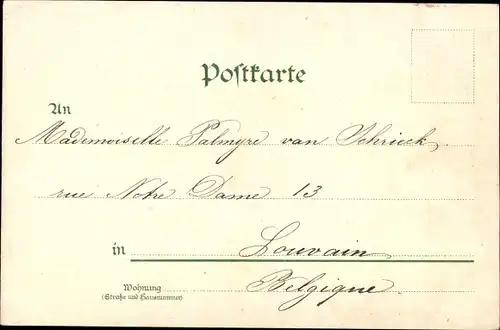 Postkarte
An
Mademoiselle Palmyre van Schrieck.
rue Notre Dame 13
in Louvain
Wohnung Belgique.
(Straße und Hausnummer)